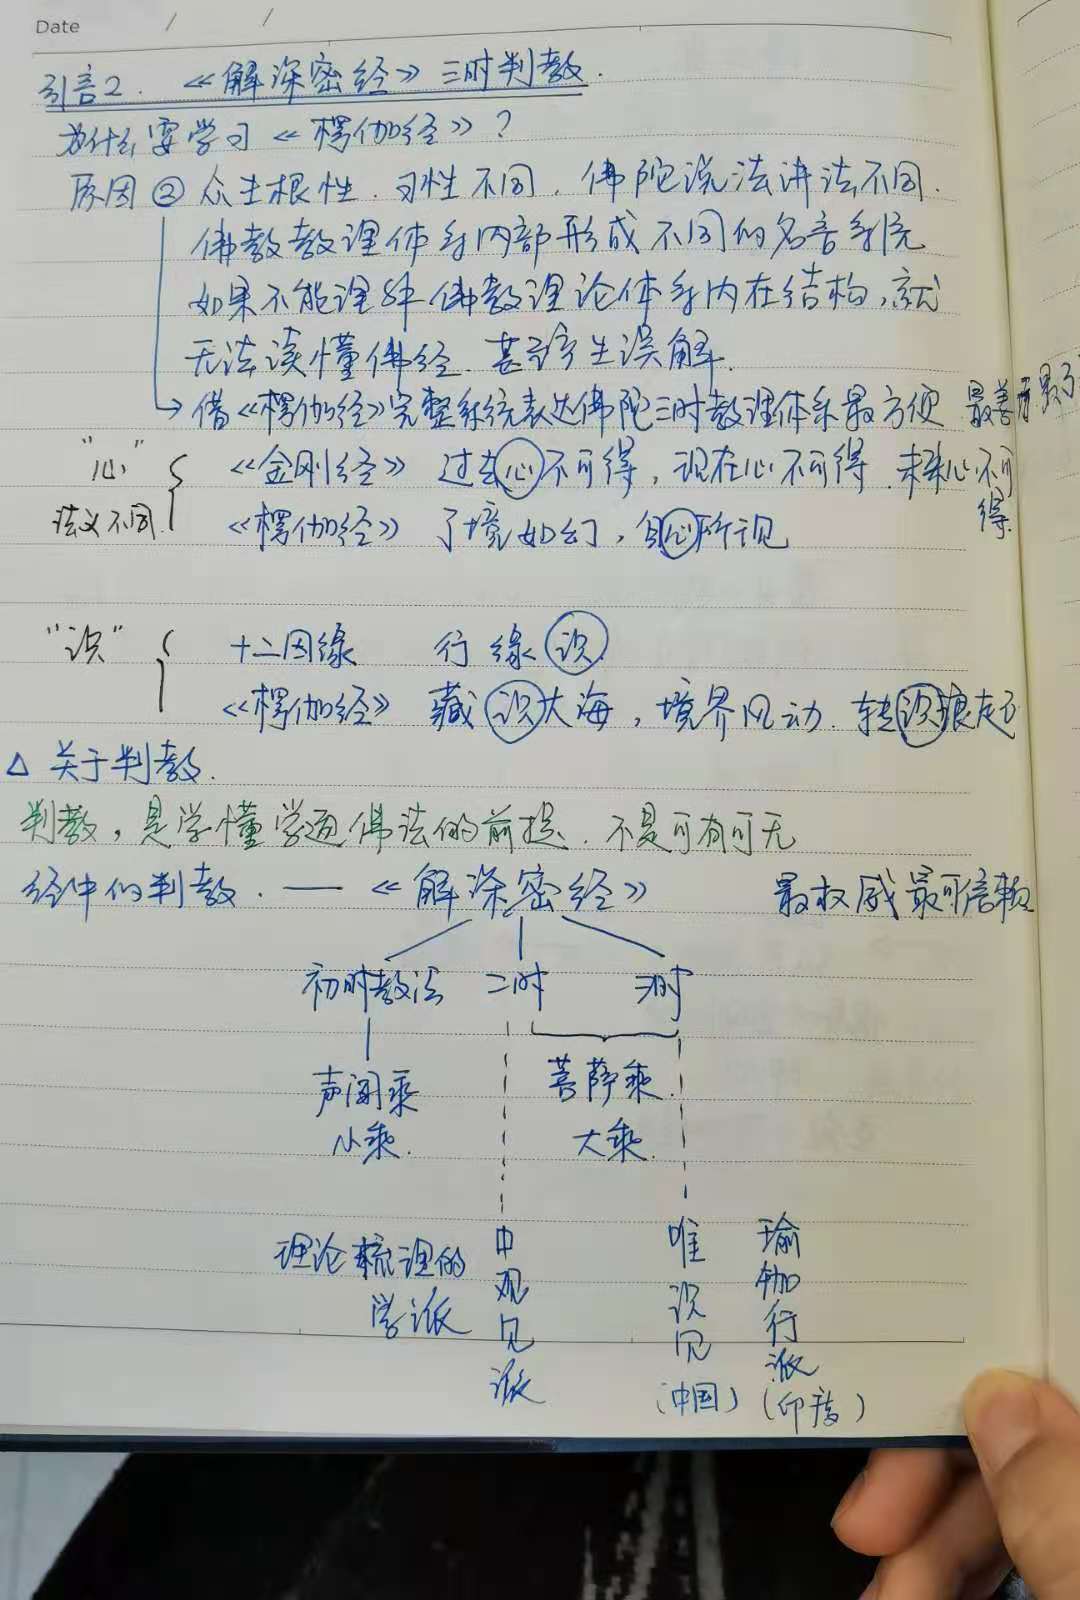 Date / /
引言2. 《解深密经》三时判教.
为什么要学习《楞伽经》?
原因② 众生根性.习性不同.佛陀说法讲法不同.
佛教教理体系内部形成不同的名言系统
如果不能理解佛教理论体系内在结构,就
无法读懂佛经.甚至产生误解.
→借《楞伽经》完整系统表达佛陀三时教理体系最方便 最善
"心" 《金刚经》 过去心不可得,现在心不可得.未来心不可得.
法义不同 《楞伽经》 了境如幻,自心所现
"识" 十二因缘 行缘识
《楞伽经》 藏识大海,境界风动.转识浪起
△ 关于判教.
判教,是学懂学通佛法的前提.不是可有可无
经中的判教.——《解深密经》 最权威最可信赖
初时教法 二时 三时
声闻乘 菩萨乘.
小乘. 大乘.
理论梳理的学派 中观见派 唯识见(中国) 瑜伽行派(印度)